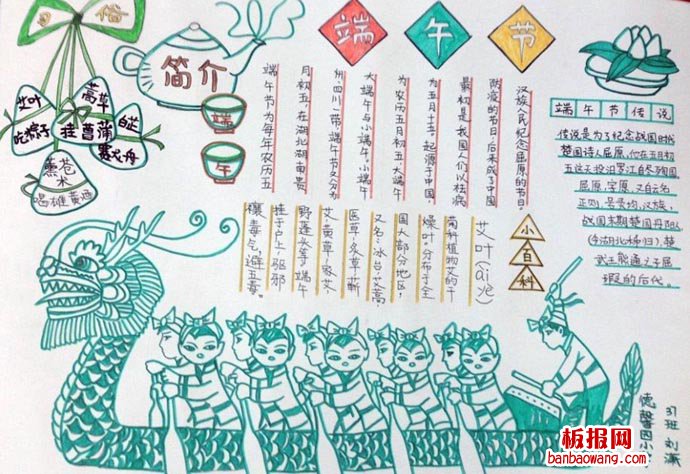 习俗
艾叶
吃粽子
挂菖蒲
白芷
赛龙舟
熏苍术
喝雄黄酒
简介
端
午
端午节
端午节为每年农历五
月初五,在湖北湖南贵
州、四川一带端午节又分为
大端午与小端午。小端午
为农历五月初五大端午
为五月十五,起源于中国
最初是我国人们以祛病
防疫的节日,后来成了中国
汉族人民纪念屈原的节日。
端午节传说
传说是为了纪念战国时代
楚国诗人屈原,他在五月初
五这天投汨罗江自尽殉国
屈原,字原,又自云名
正则,号灵均,汉族,
战国末期楚国丹阳人
(今湖北秭归),楚
武王熊通之子屈
瑕的后代。
小百科
艾叶(ài yè)
菊科植物艾的干
燥叶,分布于全
国大部分地区;
又名:冰台、艾蒿、
医草、灸草、蕲
艾、黄草、家艾、
野莲头等。端午
挂于户上,驱邪
禳毒气,避五毒。
37班
德馨园小
板报网
banbaowang.com